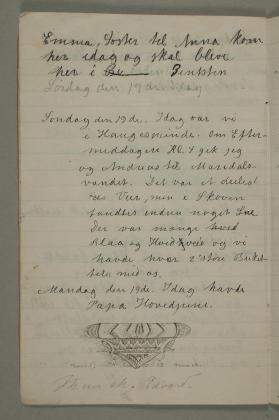 Emma, Søster til Anna kom
her idag og skal blive
her i Pintsten
Lørdag den 17de. Idag
Søndag den 18de. Idag var vi
i Haugesminde. Om Efter-
middagen Kl. 4 gik jeg
og Andreas til Maridals-
vandet. Det var et deilig
Veir, men i Skoven
fandtes endnu noget Sne
Der var mange
Blaa og Hvidveis og vi
havde hver 2 store Buket-
ter med os.
Mandag den 19de. Idag havde
Papa Hovedpine.